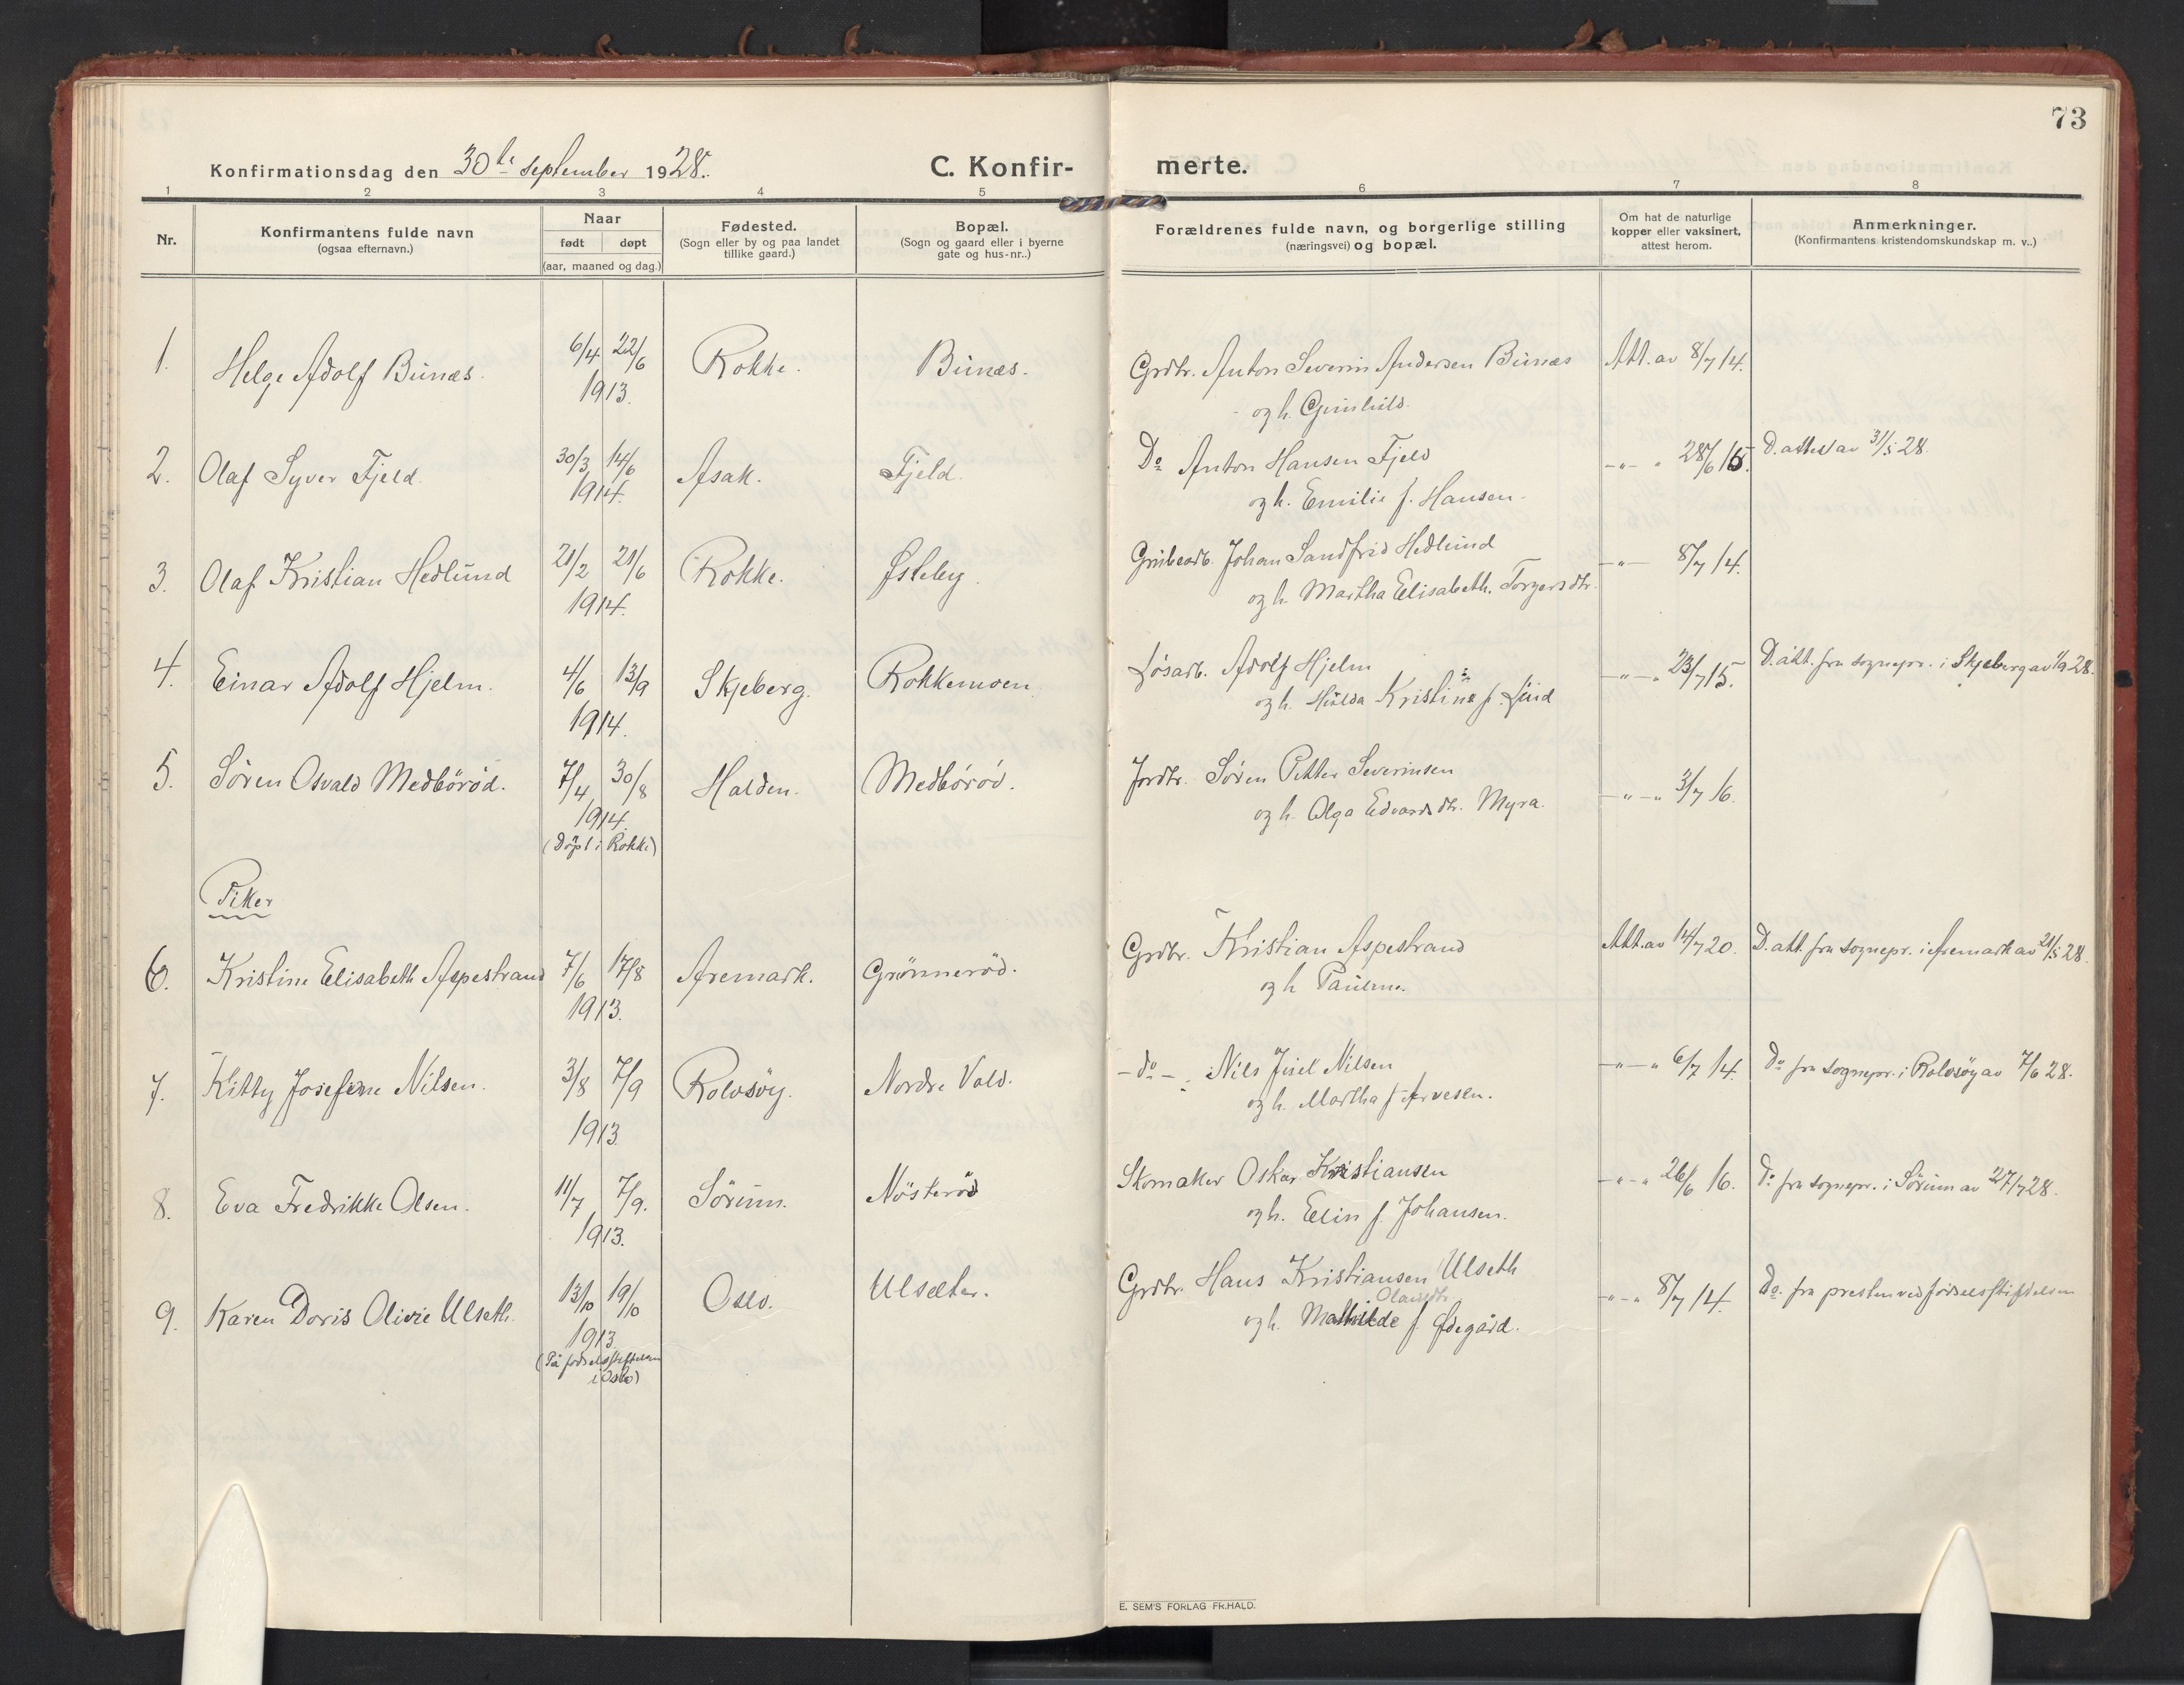 73
Konfirmationsdag den 30te september 1928.
C. Konfir-
merte.
1 2 3 4 5 6 7 8
Nr.
Konfirmantens fulde navn
(ogsaa efternavn.)
Naar
født døpt
(aar, maaned og dag.)
Fødested.
(Sogn eller by og paa landet
tillike gaard.)
Bopæl.
(Sogn og gaard eller i byerne
gate og hus-nr..)
Forældrenes fulde navn, og borgerlige stilling
(næringsvei) og bopæl.
Om hat de naturlige
kopper eller vaksinert,
attest herom.
Anmerkninger.
(Konfirmantens kristendomskundskap m. v..)
1. Helge Adolf Bunæs. 6/4 22/6 Rokke. Bunæs. Grdbr. Anton Severin Andersen Bunæs Att. av 8/7 14.
1913. og h. Gunhild.
2. Olaf Syver Fjeld. 30/3 14/6 Asak. Fjeld. Do Anton Hansen Fjeld -"- " 28/6 16. D. attest av 31/5 28.
1914. og h. Emilie f. Hansen.
3. Olaf Kristian Hedlund 21/2 21/6 Rokke. Østeby. Grubearb. Johan Sandfrid Hedlund -"- 8/7 14.
1914. og h. Martha Elisabeth. Torgersdtr.
4. Einar Adolf Hjelm. 4/6 13/9 Skjeberg. Rokkemoen. Løsarb. Adolf Hjelm -"-" 23/7 15. D. att. fra sognepr. i Skjeberg av 1/9 28.
1914. og h. Hulda Kristine f. Lund
5. Søren Osvald Medbörød. 7/4 30/8 Halden. Medbörød. Jordbr. Søren Petter Severinsen -"-" 3/7 16.
1914. og h. Olga Edvardsdtr. Myra.
(Døpt i Rokke)
Piker
6. Kristine Elisabeth Aspestrand 7/6 17/8 Aremark. Grønnerød. Grdbr. Kristian Aspestrand Att. av 14/7 20. D. att. fra sognepr. i Aremark av 21/5 28.
1913. og h Pauline.
7. Kitty Josefine Nilsen. 3/8 7/9 Rolvsøy. Nordre Vold. -do- Nils Juel Nilsen -"-" 6/7 14. Do fra sognepr. i Rolvsøy av 7/6 28.
1913 og h. Martha f. Arvesen.
8. Eva Fredrikke Olsen. 11/7 7/9. Sörum. Nøsterød Skomaker Oskar Kristiansen -"-" 26/6 16. Do fra sognepr. i Sörum av 27/7 28.
1913. og h. Elin f. Johansen.
9. Karen Doris Olivie Ulseth. 13/10 19/10 Oslo. Ulsæter. Grdbr. Hans Kristiansen Ulseth -"-" 8/7 14. Do. fra presten ved fødselsstiftelsen
1913. Olausdtr.
og h. Mathilde f. Ødegård.
(På fødselsstiftelsen
i Oslo)
E. SEM'S FORLAG FR.HALD.